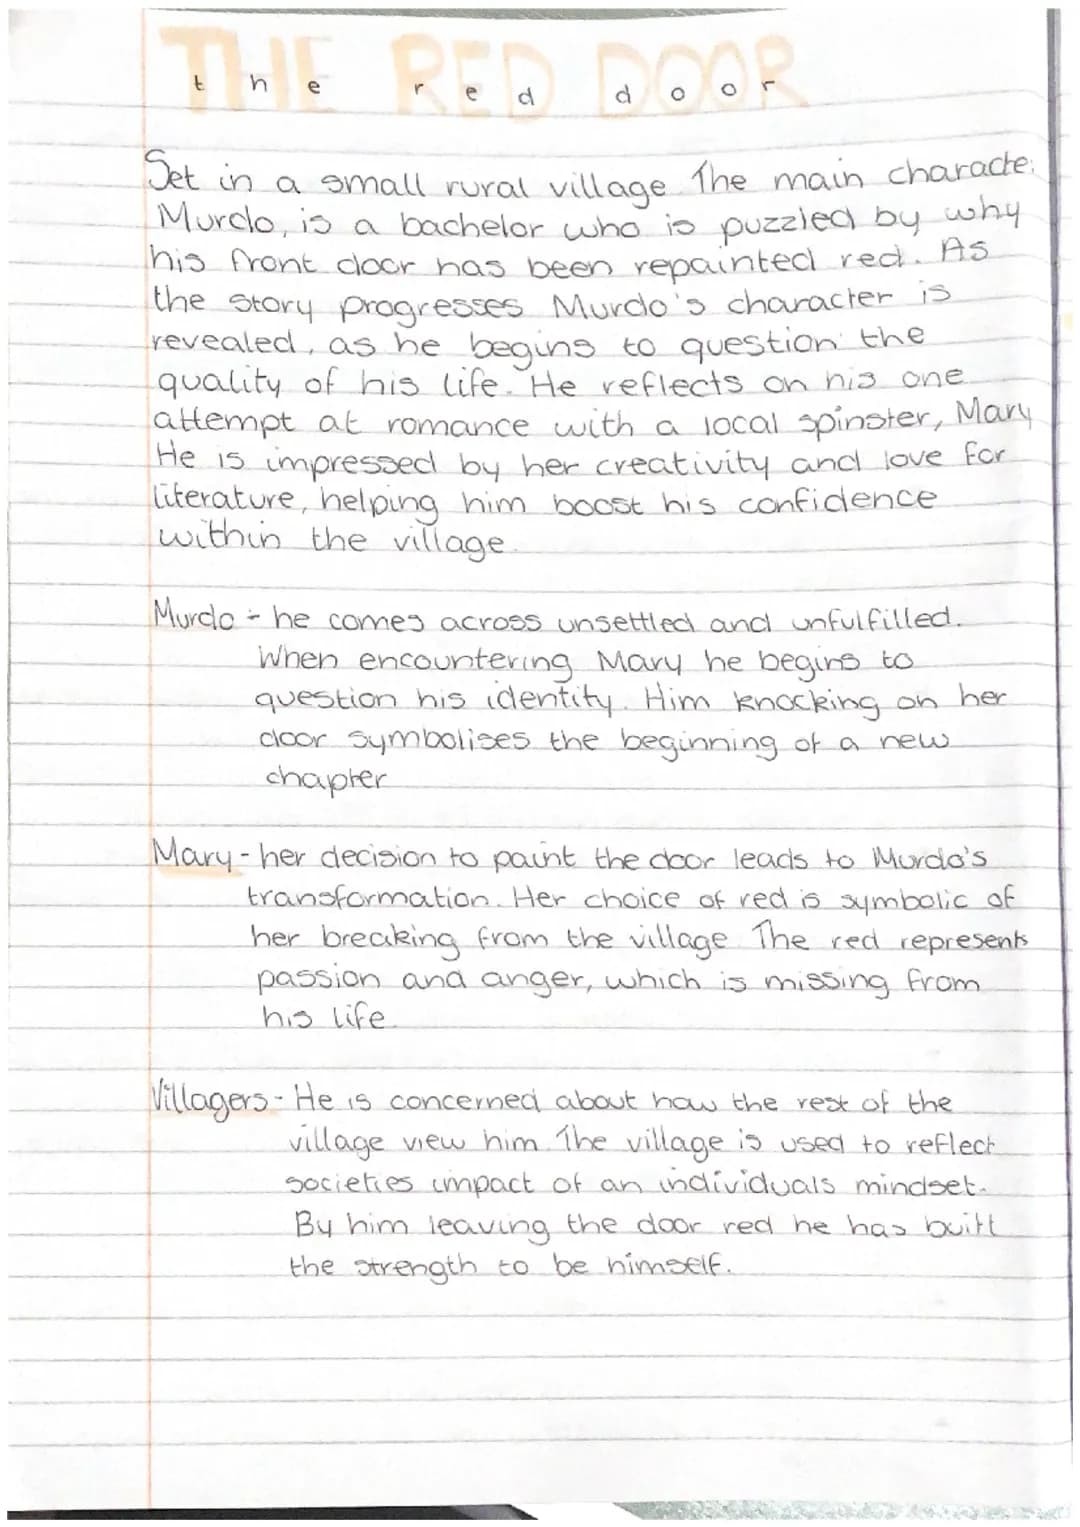 THE RED DOOR
the red door
Set in a small rural village. The main characte
Murdo, is a bachelor who is puzzled by why
his front door has been repainted red. As
the story progresses Murdo's character is
revealed, as he begins to question the
quality of his life. He reflects on his one
attempt at romance with a local spinster, Mary
He is impressed by her creativity and love for
literature, helping him boost his confidence
within the village.
Murdo - he comes across unsettled and unfulfilled.
When encountering Mary he begins to
question his identity. Him knocking on her
door symbolises the beginning of a new
chapter
Mary - her decision to paint the door leads to Murdo's
transformation. Her choice of red is symbolic of
her breaking from the village. The red represents
passion and anger, which is missing from
his life.
Villagers - He is concerned about how the rest of the
village view him. The village is used to reflect
societies impact of an individuals mindset.
By him leaving the door red he has built
the strength to be himself.